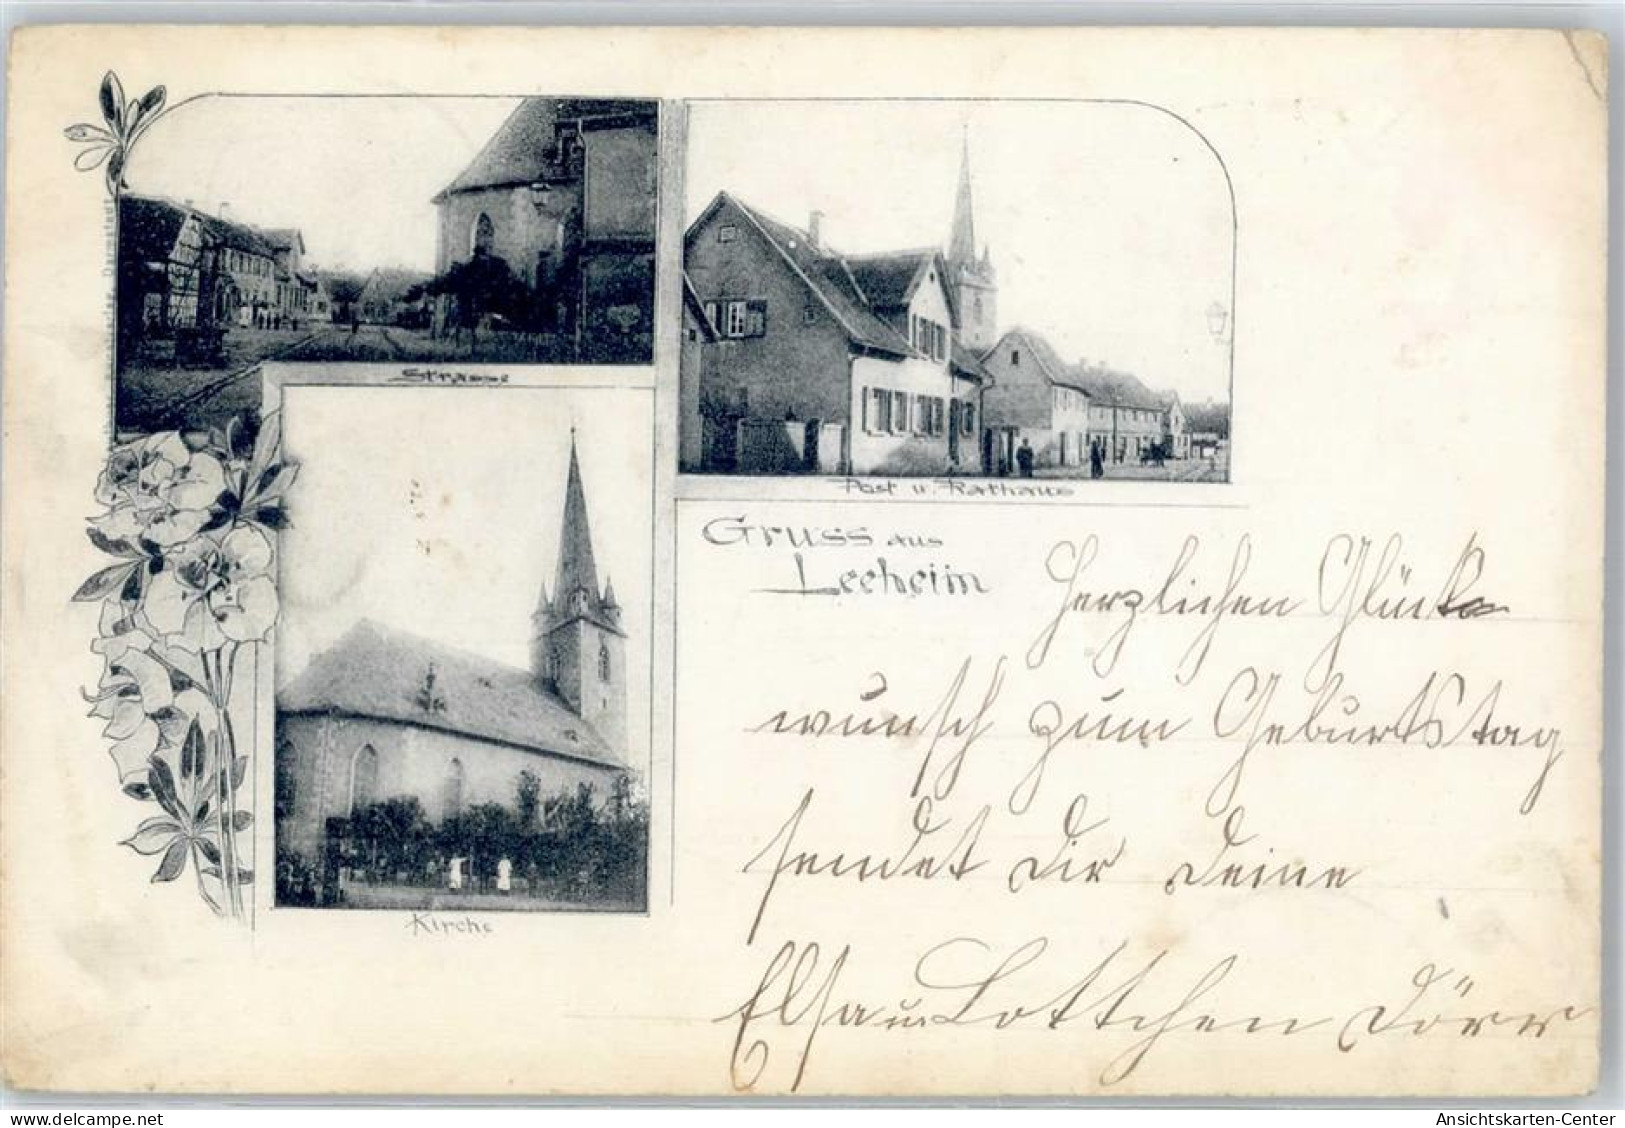 Strasse
Post u. Rathaus
Kirche
Gruss aus
Leeheim
Herzlichen Glück
wunsch zum Geburtstag
sendet Dir Deine
Elsa u. Lottchen Dörr
www.delcampe.net
Ansichtskarten-Center